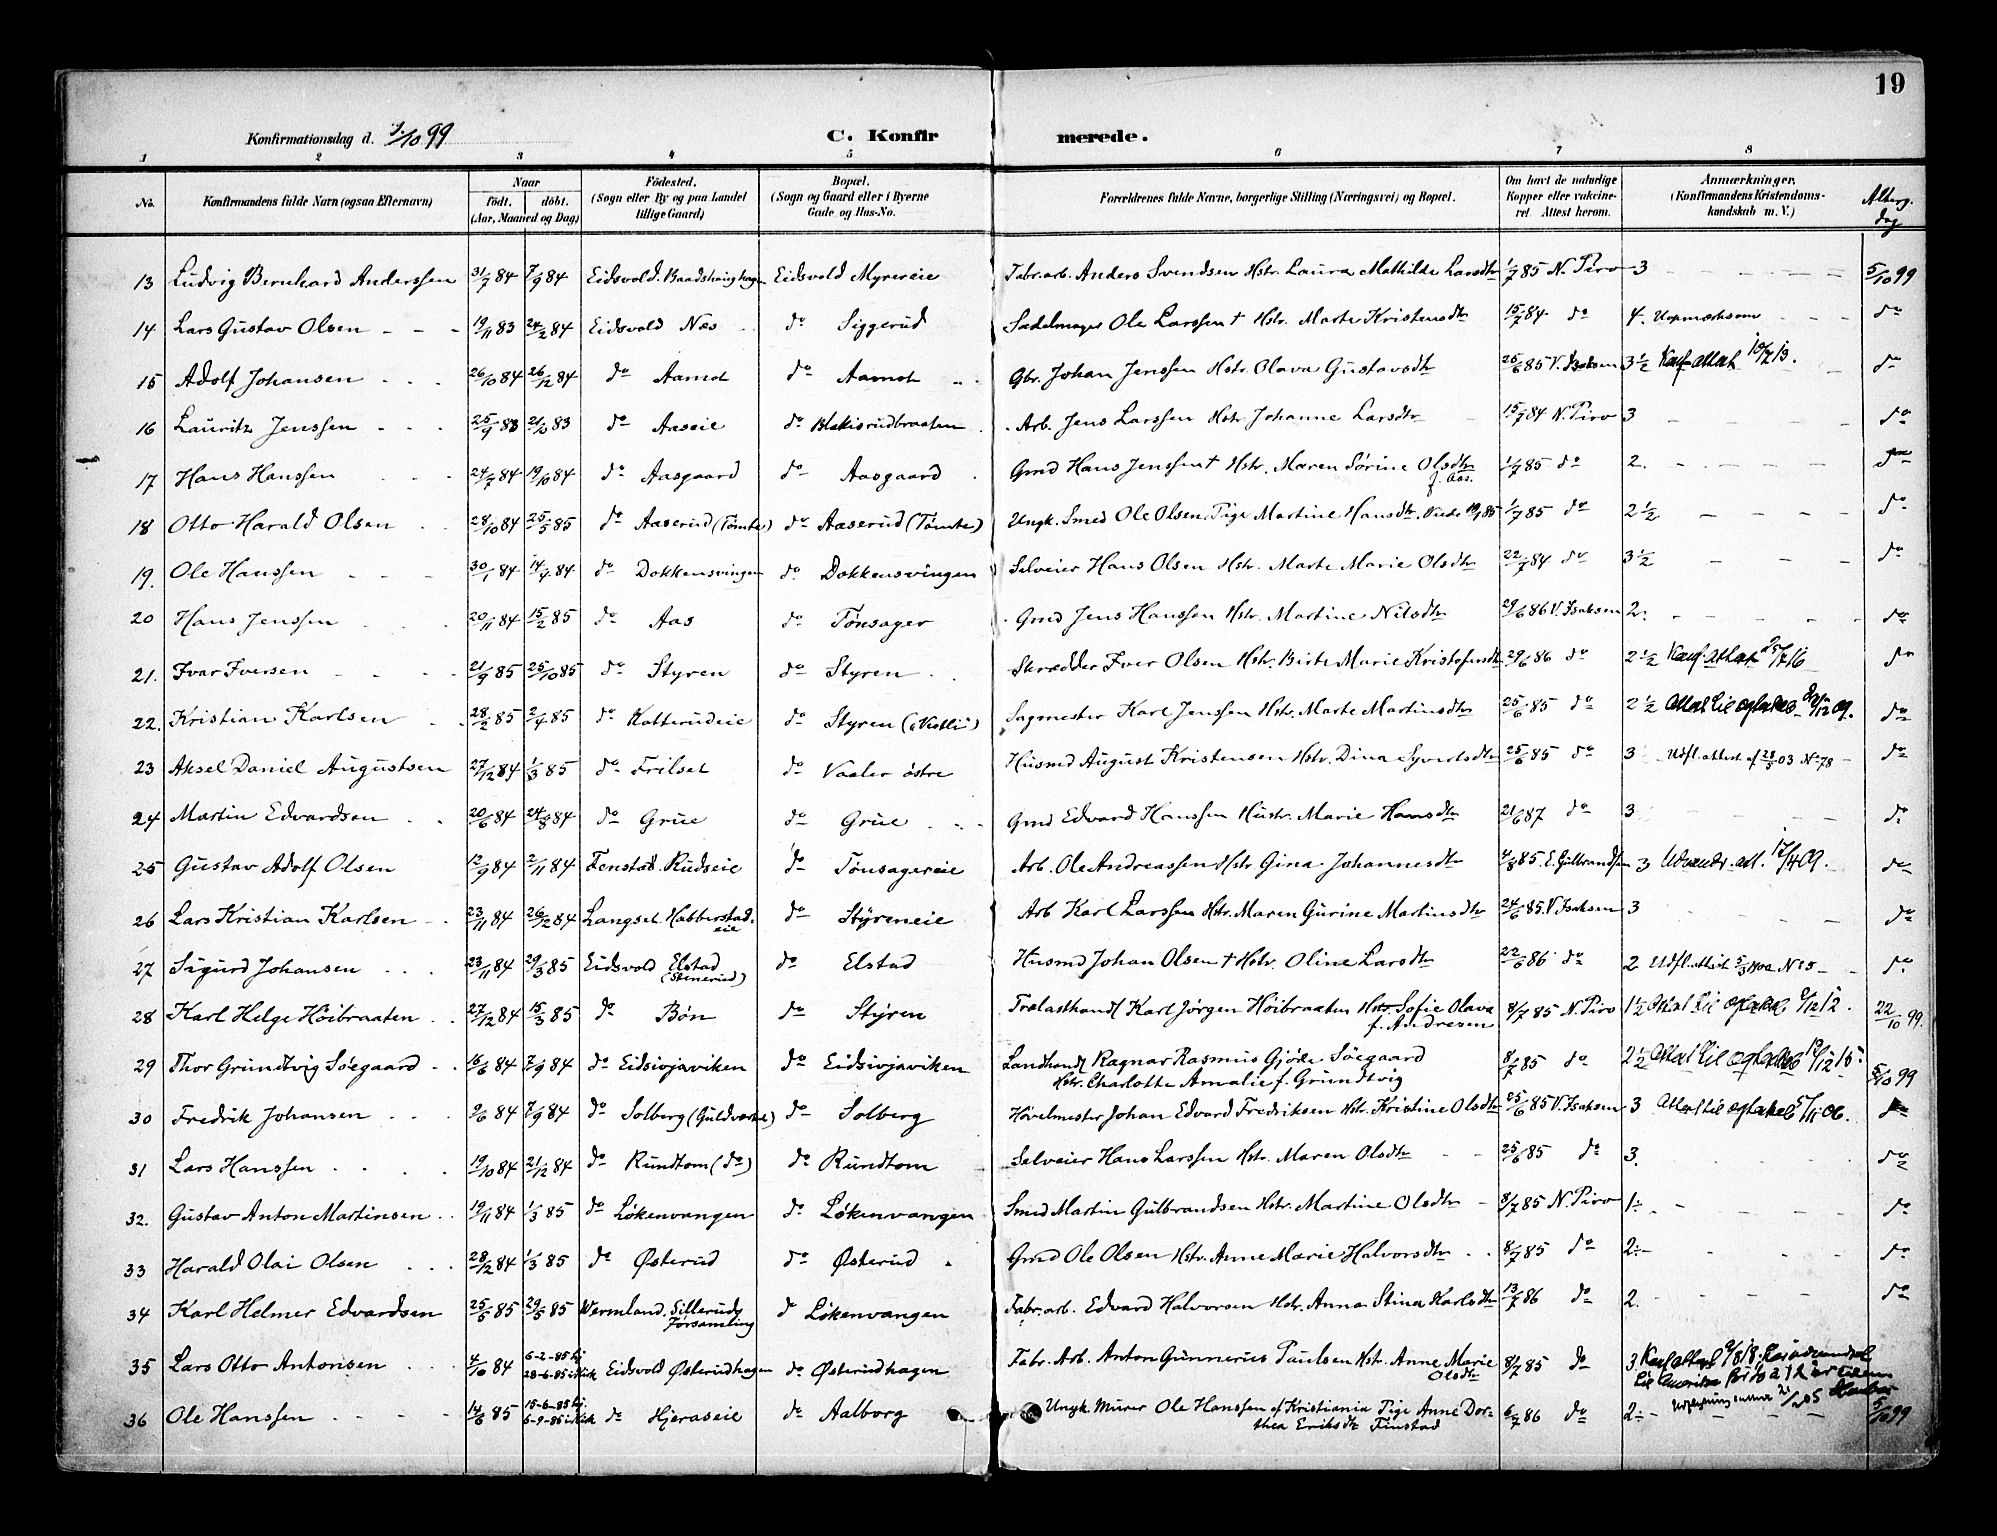 19
Konfirmationsdag d. 1/10 99 C. Konfirmerede.
1 2 3 4 5 6 7 8
No. Konfirmandens fulde Navn (ogsaa Efternavn) Naar født. døbt. (Aar, Maaned og Dag) Fødested. (Sogn eller By og paa Landet tillige Gaard) Bopæl. (Sogn og Gaard eller i Byerne Gade og Hus-No. Forældrenes fulde Navne, borgerlige Stilling (Næringsvei) og Bopæl. Om havt de naturlige Kopper eller vakcineret. Attest herom. Anmærkninger. (Konfirmandens Kristendomskundskab m. V.) Altergdag
13 Ludvig Bernhard Anderssen 31/7 84 7/9 84 Eidsvold. Baadshaughagen Eidsvold Myrereie Fabr. arb. Anders Svendsen Hstr. Laura Mathilde Larsdtr 1/7 85 N. Piro 3 5/10 99
14 Lars Gustav Olsen 19/11 83 24/2 84 Eidsvold Næs do Siggerud Sadelmager Ole Larssen † Hstr. Marte Kristensdtr 15/7 84 do 4. Uopmærksom do
15 Adolf Johansen 26/10 84 26/12 84 do Aamot do Aamot Gbr. Johan Jenssen Hstr. Olava Gustavsdtr 25/6 85 V. Isaksen 3 1/2 Konf. attest 10/7 13. do
16 Lauritz Jenssen 25/9 83 21/10 83 do Aaseie do Blekisrudbraaten Arb. Jens Larssen Hstr. Johanne Larsdtr 15/7 84 N. Piro 3 do
17 Hans Hanssen 24/7 84 19/10 84 do Aasgaard do Aasgaard Gmd Hans Jenssen † Hstr. Maren Sørine Olsdtr f. Aas. 1/7 85 do 2. do
18 Otto Harald Olsen 28/10 84 25/5 85 do Aaserud (Tømte) do Aaserud (Tømte) Ungk. Smed Ole Olsen. Pige Martine Hansdtr. Viede 85 1/7 85 do 2 1/2 do
19. Ole Hanssen 30/1 84 14/4 84 do Dokkensvingen do Dokkensvingen Selveier Hans Olsen Hstr. Marte Marie Olsdtr 22/7 84 do 3 1/2 do
20 Hans Jenssen 20/11 84 15/2 85 do Aas do Tønsager Gmd Jens Hanssen Hstr. Martine Nilsdtr 29/6 86 V. Isaksen 2. do
21. Ivar Iversen 21/9 85 25/10 85 do Styren do Styren Skrædder Iver Olsen Hstr. Birte Marie Kristofersdtr 29/6 86 do 2 1/2 Konf. attest 25/7 16 do
22. Kristian Karlsen 28/2 85 2/4 85 do Katterudeie do Styren ("Vestli") Sagmester Karl Jenssen Hstr. Marte Martinsdtr 25/6 85 do 2 1/2 Attest til egteskab 12 09. do
23 Aksel Daniel Augustsen 27/12 84 1/3 85 do Frilset do Vaaler østre Husmd August Kristensen Hstr. Dina Syvertsdtr 25/6 85 do 3 Udfl. attest af 28/5 03 No 78 do
24 Martin Edvardsen 20/6 84 24/8 84 do Grue do Grue Gmd Edvard Hanssen Hustr. Marie Hansdtr 21/6 87 do 3 do
25 Gustav Adolf Olsen 12/9 84 2/11 84 Fenstad Rudseie do Tønsagereie Arb. Ole Andreassen Hstr Gina Johannesdtr 4/8 85 E. Gulbrandsen 3 Udvandr. att. 17/4 09. do
26 Lars Kristian Karlsen 23/11 84 26/12 84 Langset Habberstadeie do Styreneie Arb Karl Larssen Hstr. Maren Gurine Martinsdtr 24/6 85. V. Isaksen 3 do
27 Sigurd Johansen 23/11 84 29/3 85 Eidsvold Elstad (Stenerud) do Elstad Husmd Johan Olsen † Hstr. Oline Larsdtr 22/6 86 do 2 Udfl. attest 5/3 1902 No 25 do
28 Karl Helge Höibraaten 27/12 84 15/3 85 do Bøn do Styren Trælasthandl Karl Jørgen Höibraaten Hstr. Sofie Olava f. Andresen 8/7 85 N. Piro 1 1/2 Attest til egteskab 9/12 12. 22/10 99.
29 Thor Grundtvig Söegaard 16/6 84 7/9 84 do Eidsivjaviken do Eidsivjaviken Landhandl Ragnar Rasmus Gjøde Söegaard Hstr. Charlotte Amalie f. Grundtvig 8/7 85 do 2 1/2 Attest til egteskab 12/12 15. 5/10 99
30 Fredrik Johansen 9/6 84 7/9 84 do Solberg (Guldværket) do Solberg Høvelmester Johan Edvard Fredriksen Hstr. Kristine Olsdtr 25/6 85 V. Isaksen 3 Attest til egteskab 5/11 06. do
31 Lars Hanssen 19/10 84 21/12 84 do Rundtom (do) do Rundtom Selveier Hans Larssen Hstr. Maren Olsdtr 25/6 85 do 3. do
32. Gustav Anton Martinsen 19/11 84 1/3 85 do Løkenvangen do Løkenvangen Smed Martin Gulbrandsen Hstr. Martine Olsdtr 8/7 85 N. Piro 1÷ do
33 Harald Olai Olsen 28/12 84 1/3 85 do Østerud do Østerud Gmd Ole Olsen Hstr. Anne Marie Halvorsdtr 8/7 85 do 2÷ do
34 Karl Helmer Edvardsen 25/5 85 29/5 85 Wermland. Silleruds Forsamling d Løkenvangen Fabr. arb. Edvard Halvorsen Hstr. Anna Stina Karlsdtr 13/7 86 do 2. do
35 Lars Otto Antonsen 4/10 84 6-2-85 hj. 28-6-85 i Kirk Eidsvold Østerudhagen do Østerudhagen Fabr. Arb. Anton Gunnerius Paulsen Hstr. Anne Marie Olsdtr 8/7 85 do 3 Konf attest 9/8 18. til Amerika for 10 a 12 år siden
36 Ole Hanssen 14/6 85 15-6-85 hj. 6-9-85 i Kirk do Hjeraseie do Aalborg Ungk. Murer Ole Hanssen af Kristiania Pige Anne Dorthea Eriksdtr Finstad 6/7 86 do 2÷ 5/10 99